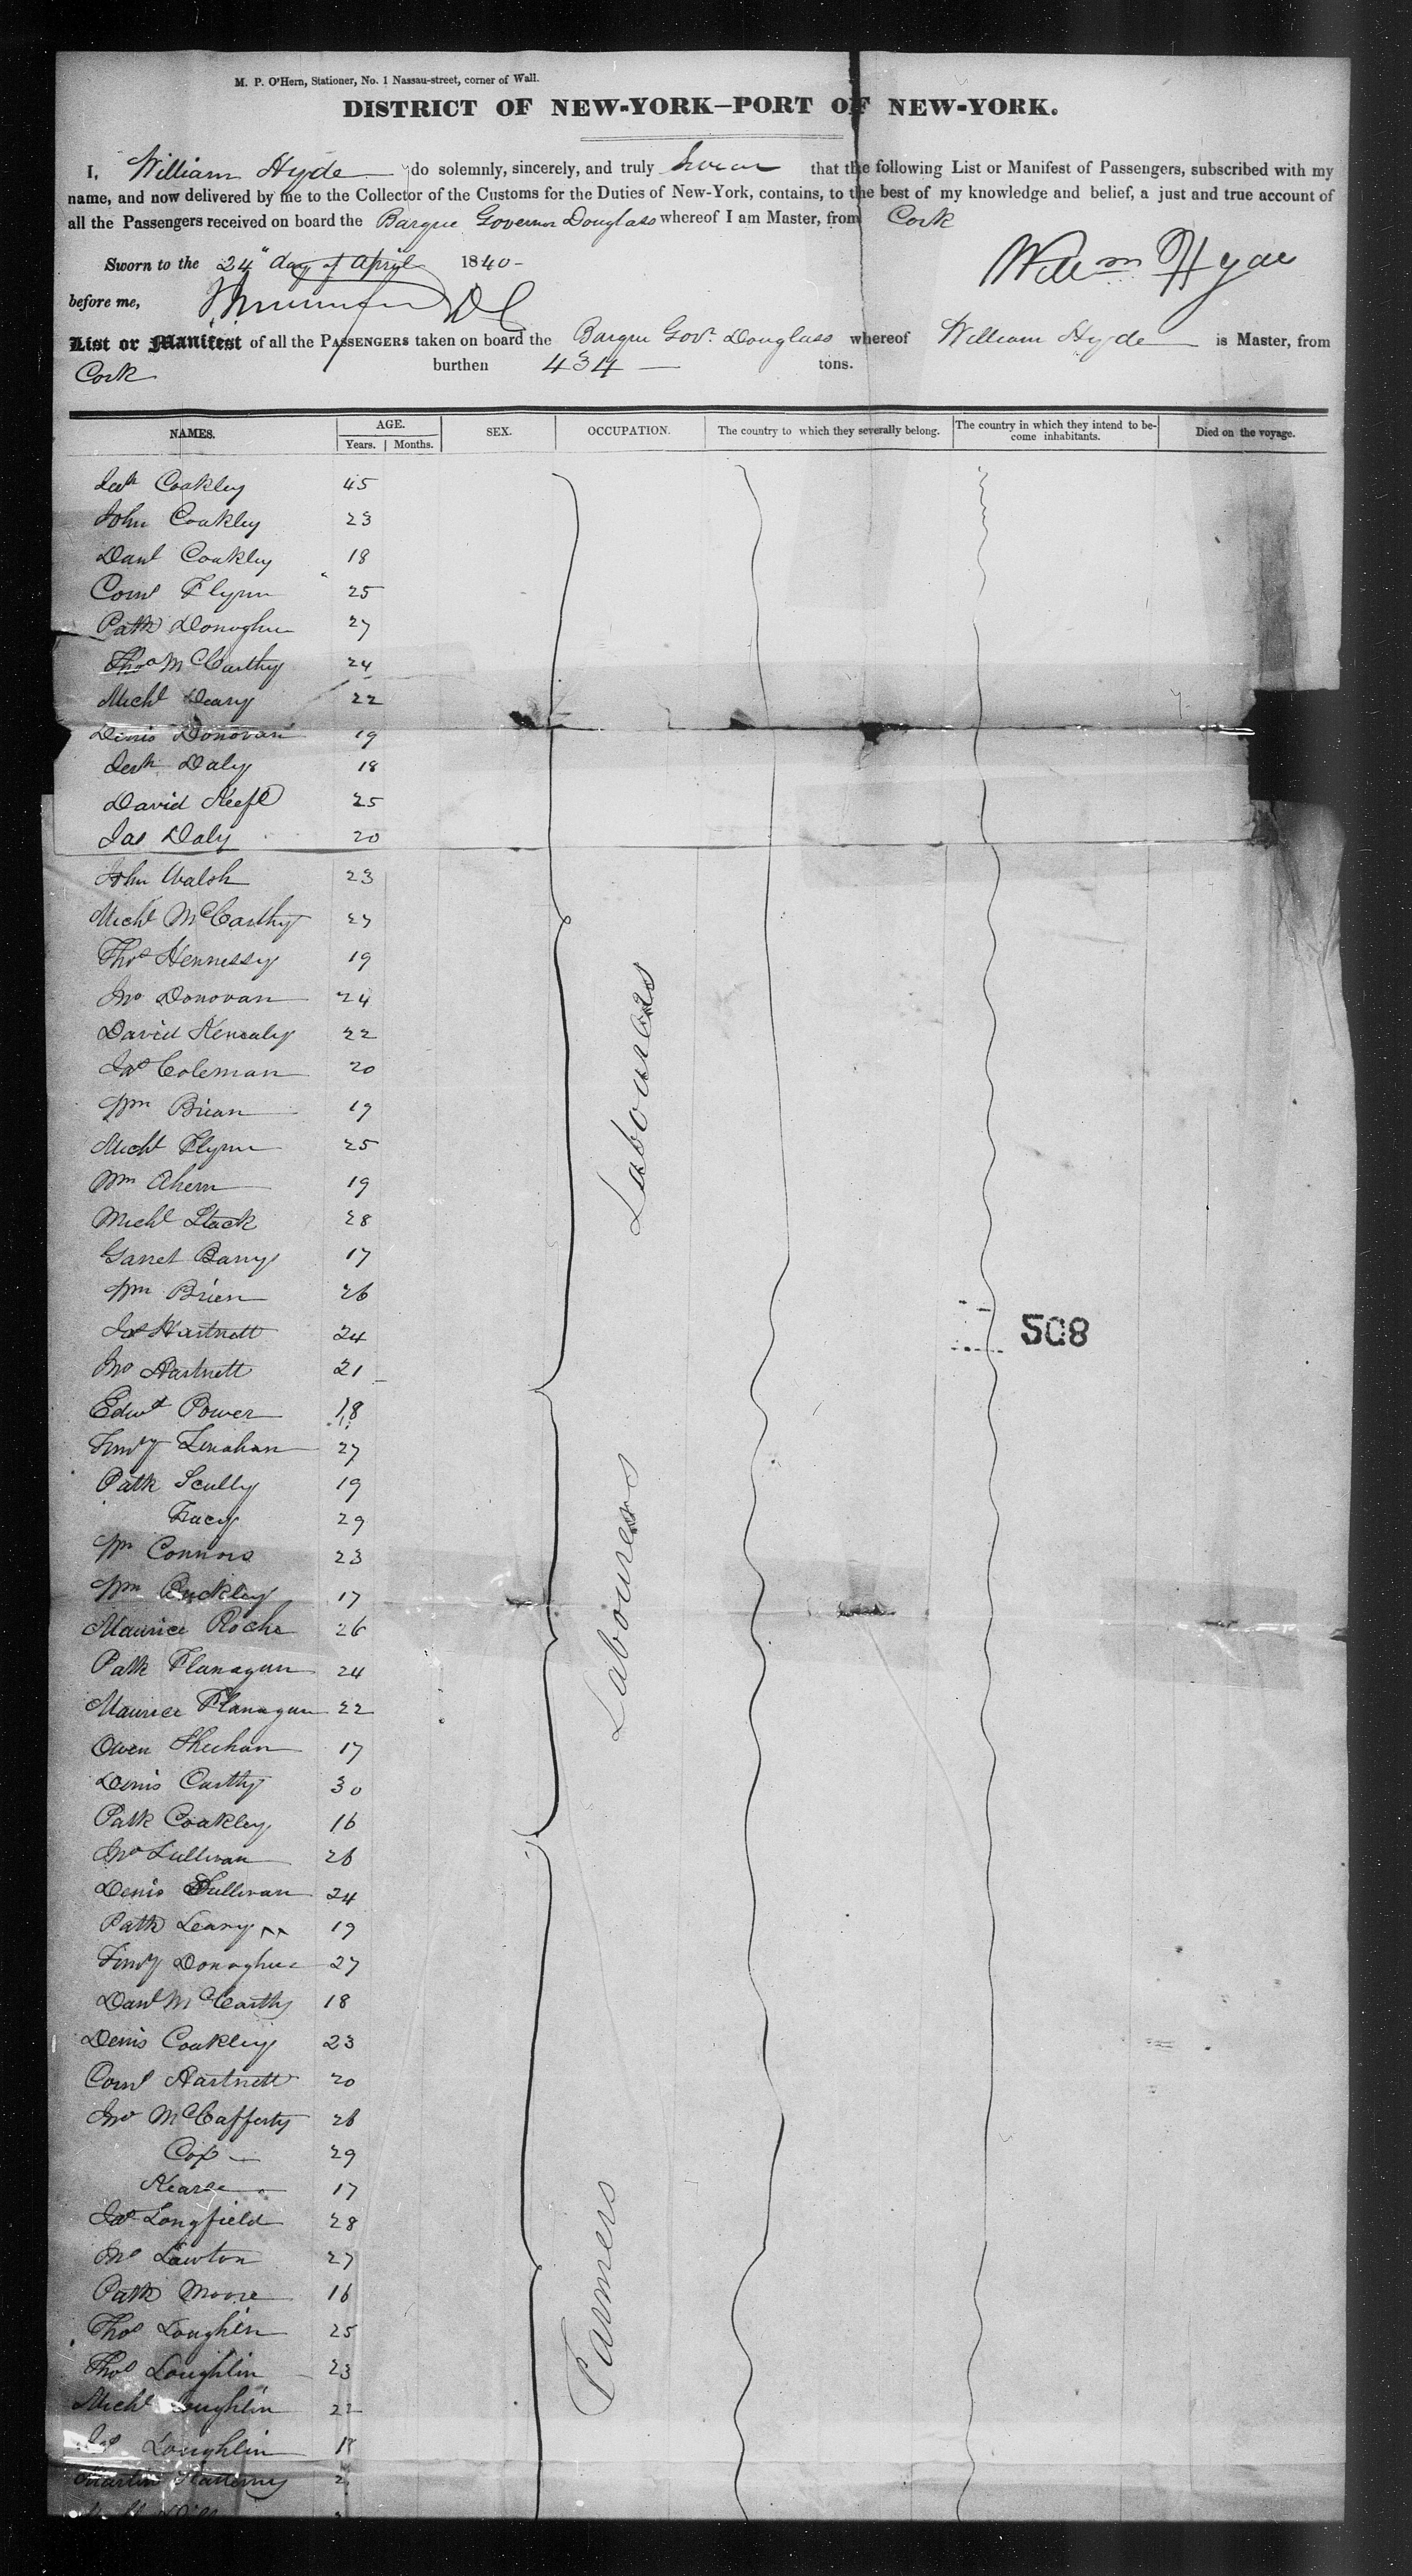 M. P. O'Hern, Stationer, No. 1 Nassau-street, corner of Wall.
DISTRICT OF NEW-YORK—PORT OF NEW-YORK.
I, William Hyde do solemnly, sincerely, and truly swear that the following List or Manifest of Passengers, subscribed with my
name, and now delivered by me to the Collector of the Customs for the Duties of New-York, contains, to the best of my knowledge and belief, a just and true account of
all the Passengers received on board the Barque Governor Douglass whereof I am Master, from Cork
Sworn to the 24" day of April 1840-
Willm Hyde
before me,
List or Manifest of all the PASSENGERS taken on board the Barque Govr. Douglass whereof William Hyde is Master, from
Cork burthen 434 tons.
NAMES. AGE. Years. Months. SEX. OCCUPATION. The country to which they severally belong. The country in which they intend to become inhabitants. Died on the voyage.
Coakley 45
John Coakley 23
Danl Coakley 18
Cornl Flynn 25
Patk Donoghue 27
Thos McCarthy 24
Michl Deary 22
Denis Donovan 19
Jerh Daly 18
David Keefe 25
Jas Daly 20
John Walsh 23
Michl McCarthy 27
Thos Hennessy 19
Jno Donovan 24
David Kenealy 22
Jas Coleman 20
Wm Brian 19
Michl Flynn 25
Wm Ahern 19
Michl Stack 28
Garret Barry 17
Wm Brien 26
Jas Hartnett 24
Jno Hartnett 21
Labourers
508
Edwd Power 18
Timy Linahan 27
Patk Scully 19
Tracy 29
Wm Connors 23
Wm Buckley 17
Maurice Roche 26
Patk Flanagan 24
Maurice Flanagan 22
Owen Sheehan 17
Denis Carthy 30
Patk Coakley 16
Labourers
Jno Sullivan 26
Denis Sullivan 24
Patk Leary 19
Timy Donoghue 27
Danl McCarthy 18
Denis Coakley 23
Cornl Hartnett 20
Jno McCafferty 26
Cox 29
Kearse 17
Jas Longfield 28
Jno Lawton 27
Patk Moore 16
Thos Loughlin 25
Thos Loughlin 23
Michl Loughlin 22
Jas Loughlin 18
Martin Slattery
Farmers